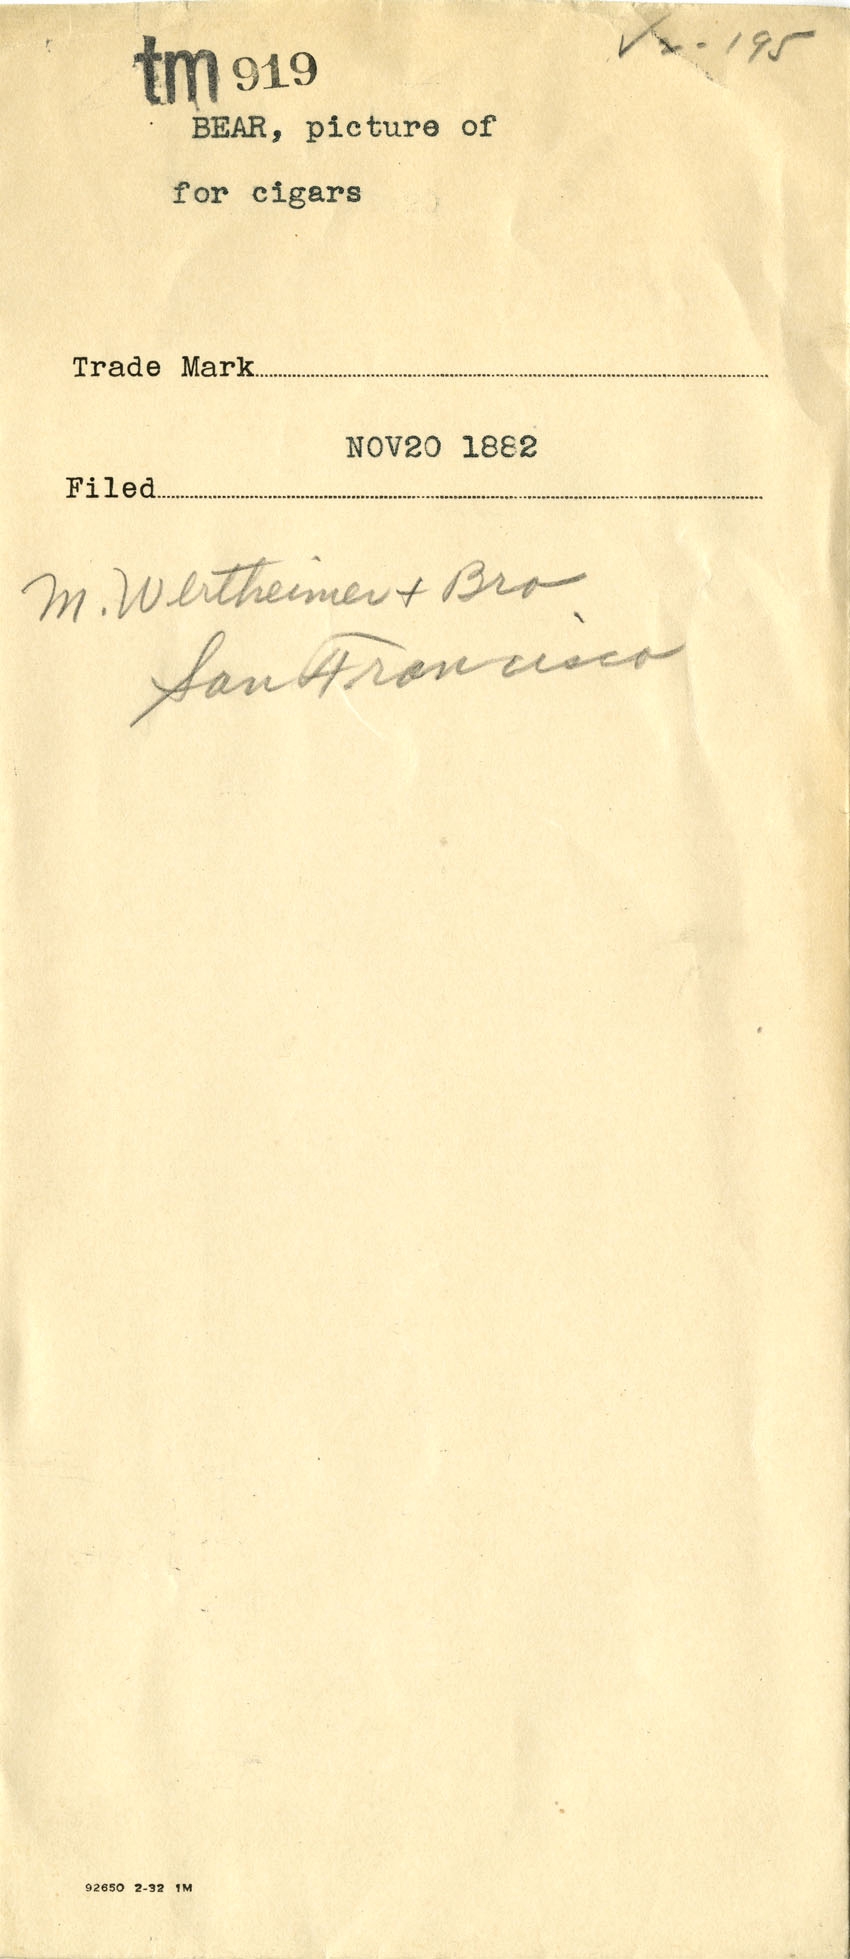 tm 919
BEAR, picture of
for cigars
Trade Mark
NOV20 1882
Filed
M. Wertheimer + Bro
San Francisco
92650 2-32 1M